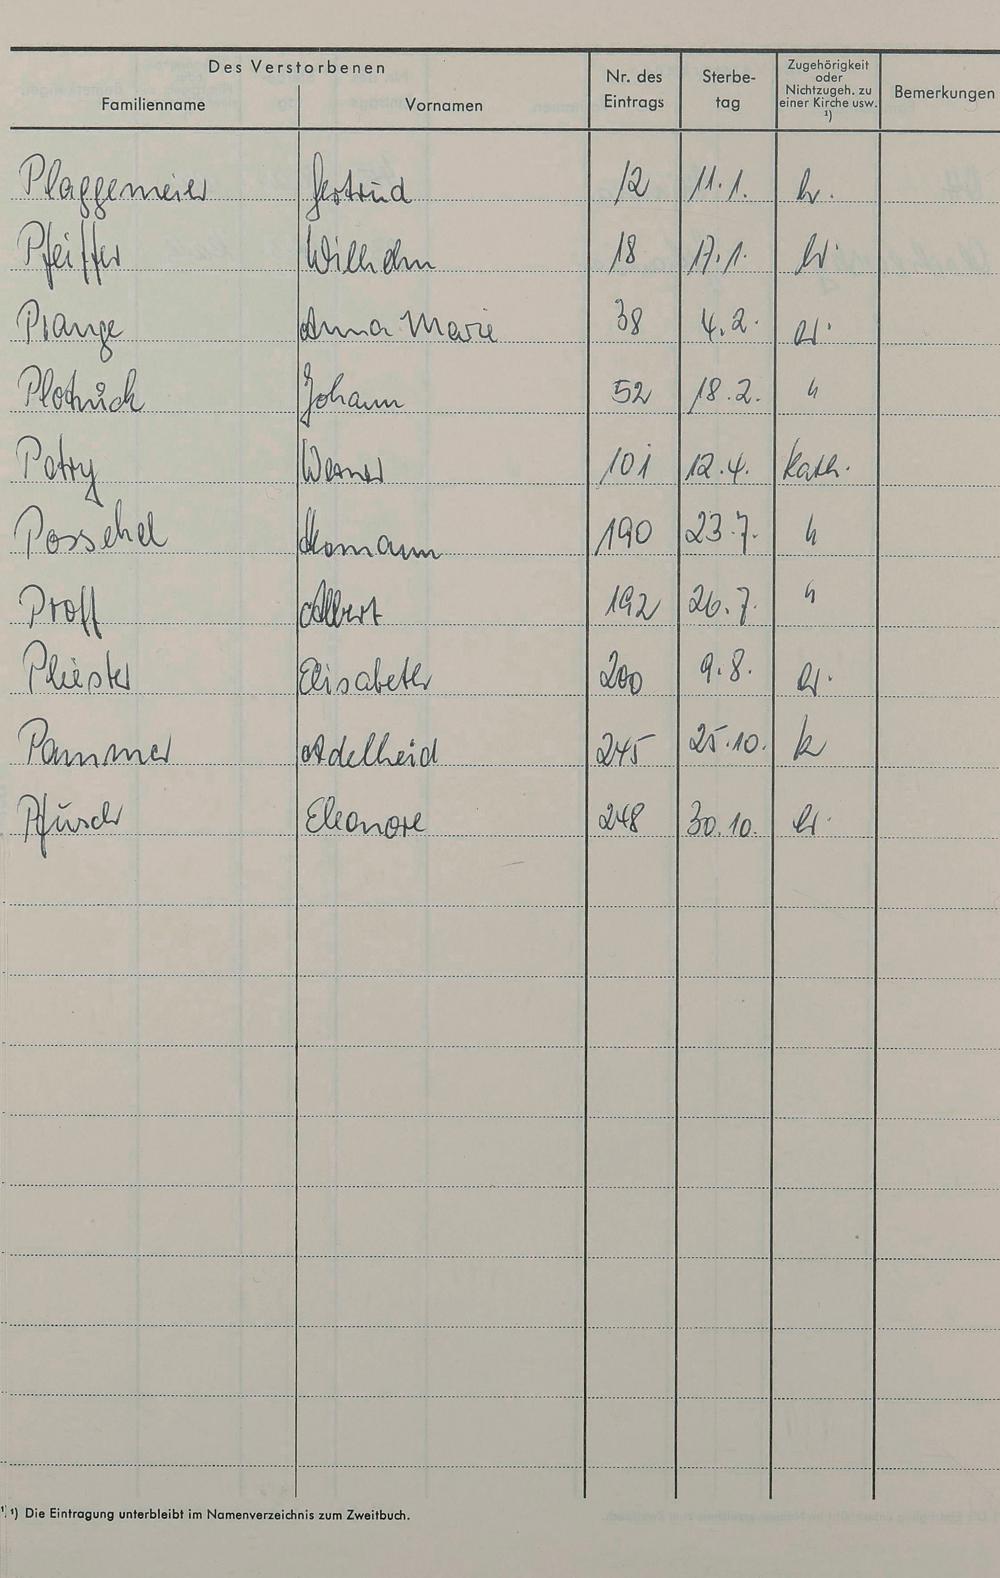 Des Verstorbenen
Familienname Vornamen Nr. des Eintrags Sterbe-tag Zugehörigkeit oder Nichtzugeh. zu einer Kirche usw. ¹) Bemerkungen
Plaggemeier Gertrud 12 11.1. ev.
Pfeiffer Wilhelm 18 17.1. ev.
Prange Anna Marie 38 4.2. ev.
Johann 52 18.2. "
Petry Werner 101 12.4. kath.
Possehel Hermann 190 23.7. "
Proff Albert 192 26.7. "
Pliester Elisabeth 200 9.8. ev.
Pammer Adelheid 245 25.10. k
Pfusch Eleonore 248 30.10. ev.
¹) Die Eintragung unterbleibt im Namenverzeichnis zum Zweitbuch.